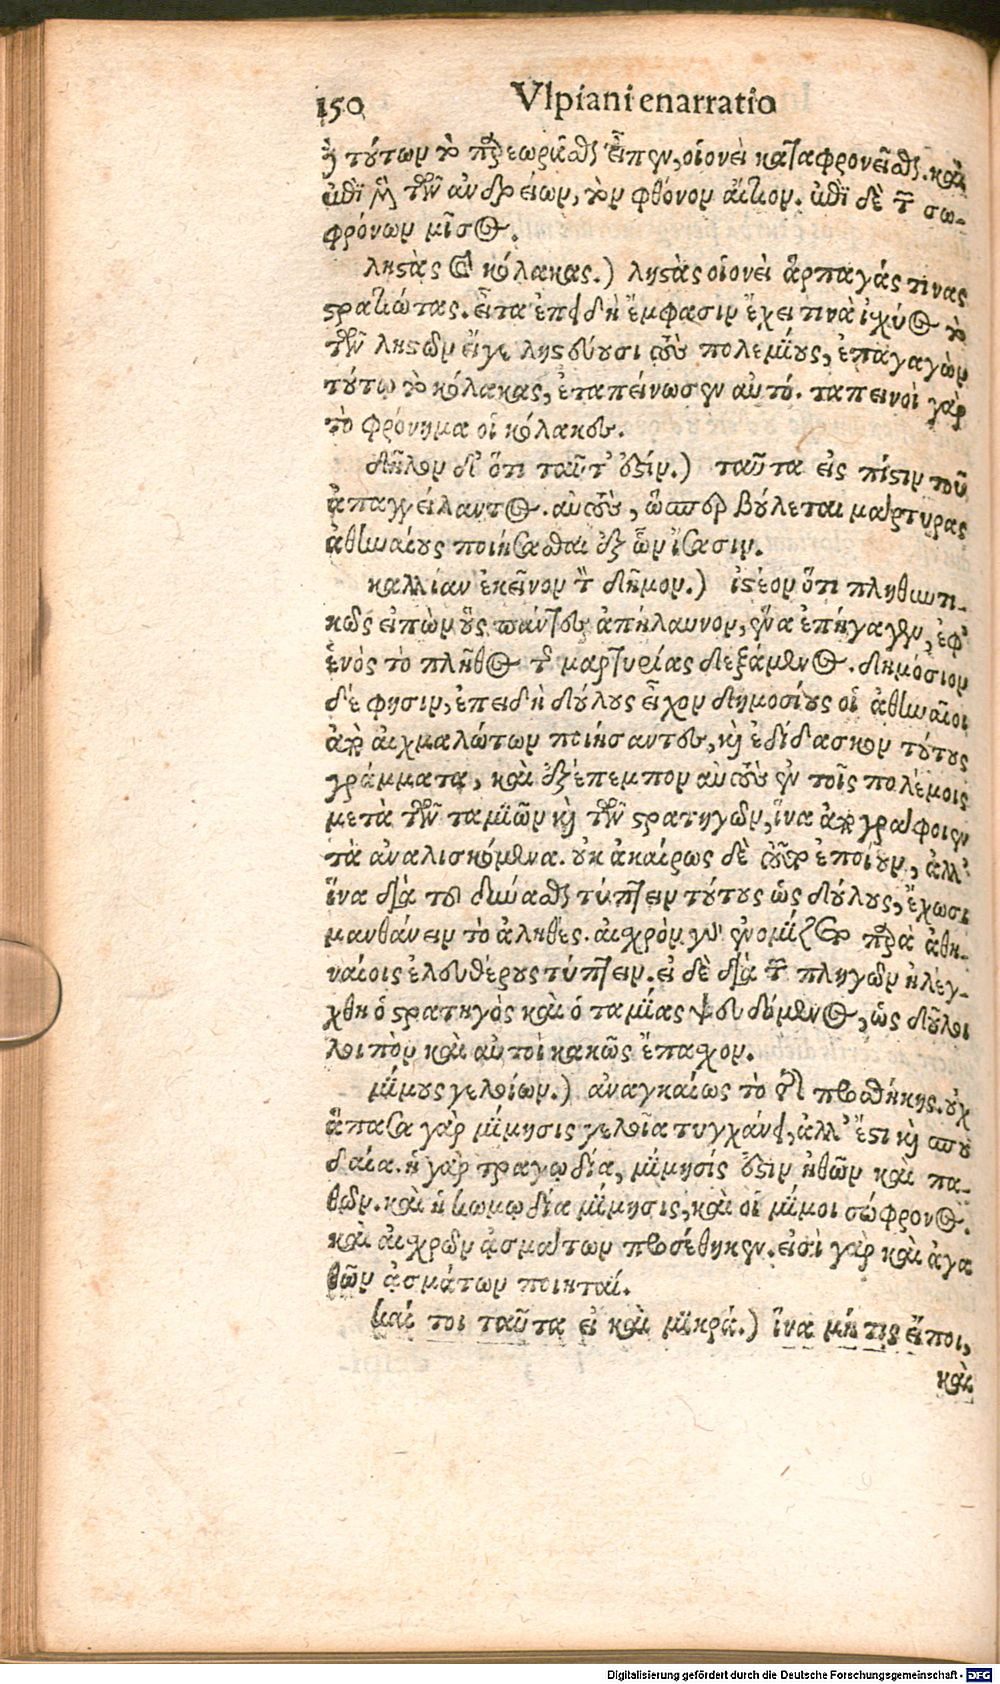 150 Vlpiani enarratio
ἢ τούτων τὸ παρεωρᾶσθαι εἶπεν, οἱονεὶ καταφρονεῖσθαι. καὶ
ἐπὶ μὲν τῶν ἀνδρείων, τὸν φθόνον αἴτιον. ἐπὶ δὲ τῶν σω-
φρόνων μῖσος.
ληστὰς καὶ κόλακας.) ληστὰς οἱονεὶ ἅρπαγάς τινας
στρατιώτας. εἶτα ἐπειδὴ ἔμφασιν ἔχει τινὰ ἰσχύος τὸ
τῶν ληστῶν εἴγε ληστεύουσι τοὺς πολεμίους, ἐπαγαγὼν
τούτῳ τὸ κόλακας, ἐταπείνωσεν αὐτό. ταπεινοὶ γὰρ
τὸ φρόνημα οἱ κόλακες.
δῆλον δ' ὅτι ταῦτ' ἐστίν.) ταῦτα εἰς πίστιν τοῦ
ἀπαγγείλαντος. αὐτοὺς, ὥσπερ βούλεται μάρτυρας
ἀθηναίους ποιήσασθαι ἐξ ὧν ἴσασιν.
καλλίαν ἐκεῖνον τὸν δῆμον.) ἰστέον ὅτι πληθυντι-
κῶς εἰπὼν οὓς πάντες ἀπήλαυνον, ἕνα ἐπήγαγεν, ἐφ'
ἑνὸς τὸ πλῆθος τῆς μαρτυρίας δεξάμενος. δημόσιον
δέ φησιν, ἐπειδὴ δούλους εἶχον δημοσίους οἱ ἀθηναῖοι
ἀπὸ αἰχμαλώτων ποιήσαντες, καὶ ἐδίδασκον τούτους
γράμματα, καὶ ἐξέπεμπον αὐτοὺς ἐν τοῖς πολέμοις
μετὰ τῶν ταμιῶν καὶ τῶν στρατηγῶν, ἵνα ἀπογράφοιεν
τὰ ἀναλισκόμενα. οὐκ ἀκαίρως δὲ τοῦτο ἐποίουν, ἀλλ'
ἵνα διὰ τὸ δύνασθαι τύπτειν τούτους ὡς δούλους, ἔχωσι
μανθάνειν τὸ ἀληθές. αἰσχρὸν γὰρ ἐνομίζετο παρὰ ἀθη-
ναίοις ἐλευθέρους τύπτειν. εἰ δὲ διὰ τῶν πληγῶν ἠλέγ-
χθη ὁ στρατηγὸς καὶ ὁ ταμίας ψευδόμενος, ὡς δοῦλοι
λοιπὸν καὶ αὐτοὶ κακῶς ἔπασχον.
μίμους γελοίων.) ἀναγκαίως τὸ τῆς προσθήκης. οὐχ
ἅπασα γὰρ μίμησις γελοῖα τυγχάνει, ἀλλ' ἔστι καὶ σπου
δαία. ἡ γὰρ τραγῳδία, μίμησίς ἐστιν ἠθῶν καὶ πα-
θῶν. καὶ ἡ κωμῳδία μίμησις, καὶ οἱ μίμοι σώφρονος.
καὶ αἰσχρῶν ᾀσμάτων προσέθηκεν. εἰσὶ γὰρ καὶ ἀγα
θῶν ᾀσμάτων ποιηταί.
καί τοι ταῦτα εἰ καὶ μικρά.) ἵνα μή τις εἴποι,
καὶ
Digitalisierung gefördert durch die Deutsche Forschungsgemeinschaft - DFG